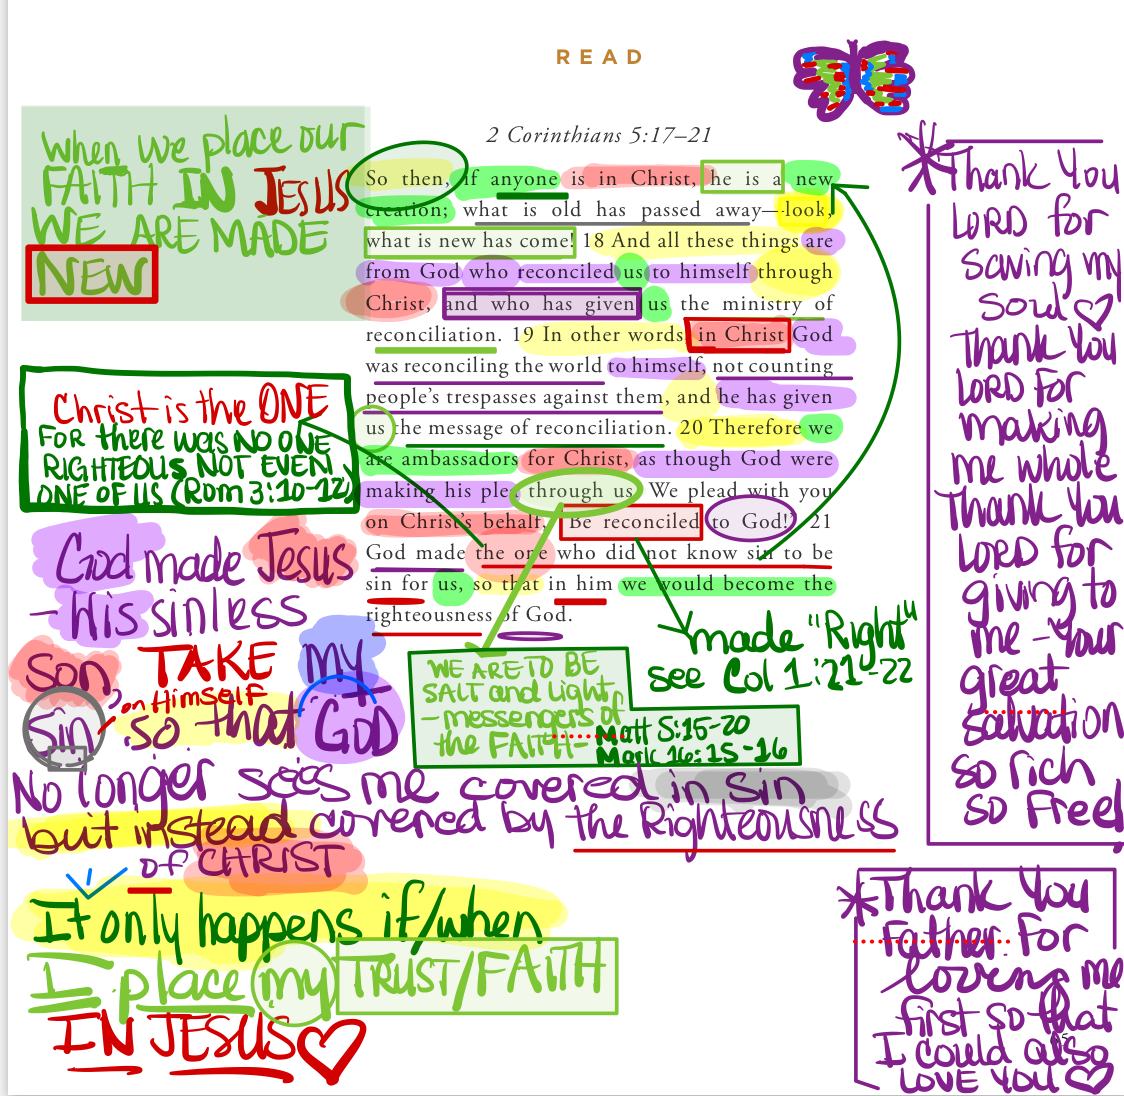 READ
2 Corinthians 5:17–21
So then, if anyone is in Christ, he is a new
creation; what is old has passed away—look,
what is new has come! 18 And all these things are
from God who reconciled us to himself through
Christ, and who has given us the ministry of
reconciliation. 19 In other words, in Christ God
was reconciling the world to himself, not counting
people's trespasses against them, and he has given
us the message of reconciliation. 20 Therefore we
are ambassadors for Christ, as though God were
making his plea through us. We plead with you
on Christ's behalf, "Be reconciled to God!" 21
God made the one who did not know sin to be
sin for us, so that in him we would become the
righteousness of God.
When we place our
FAITH IN JESUS
WE ARE MADE
NEW
Christ is the ONE
FOR there was NO ONE
RIGHTEOUS NOT EVEN
ONE OF US (Rom 3:10-12)
God made Jesus
- His sinless
Son, TAKE my
on Himself
sin so that GOD
No longer sees me covered in sin
but instead covered by the Righteousness
of CHRIST
It only happens if/when
I place my TRUST/FAITH
IN JESUS
WE ARE TO BE
SALT and Light
- messengers of
the FAITH- Matt 5:15-20
Mark 16:15-16
made "Right"
see Col 1:21-22
Thank You
LORD for
saving my
soul
Thank You
LORD for
making
me whole
Thank You
LORD for
giving to
me - Your
great
salvation
so rich
so Free!
Thank You
Father for
loving me
first so that
I could also
LOVE YOU